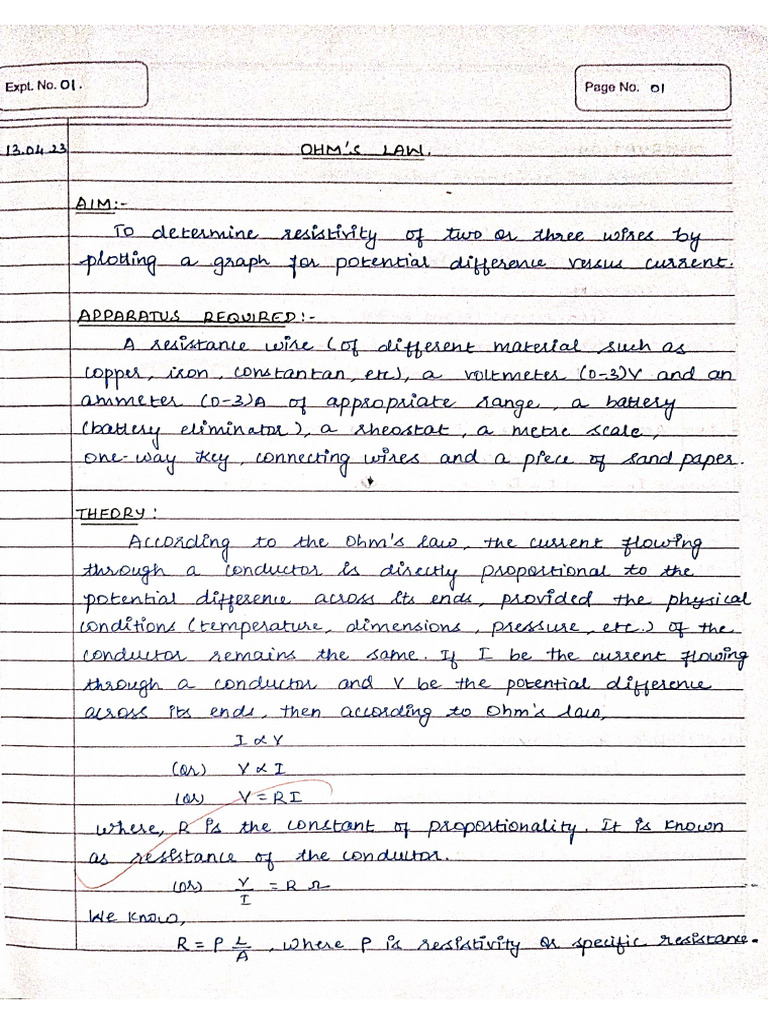 Expt. No. 01.
Page No. 01
13.04.23
OHM'S LAW.
AIM:-
To determine resistivity of two or three wires by
plotting a graph for potential difference versus current.
APPARATUS REQUIRED:-
A resistance wire (of different material such as
copper, iron, constantan, etc), a voltmeter (0-3)V and an
ammeter (0-3)A of appropriate range, a battery
(battery eliminator), a rheostat, a metre scale,
one-way key, connecting wires and a piece of sand paper.
THEORY:
According to the Ohm's law, the current flowing
through a conductor is directly proportional to the
potential difference across its ends, provided the physical
conditions (temperature, dimensions, pressure, etc.) of the
conductor remains the same. If I be the current flowing
through a conductor and V be the potential difference
across its ends, then according to Ohm's law,
I ∝ V
(or) V ∝ I
(or) V = RI
where, R is the constant of proportionality. It is known
as resistance of the conductor.
(or) V/I = R Ω
We know,
R = P L/A, where P is resistivity or specific resistance.